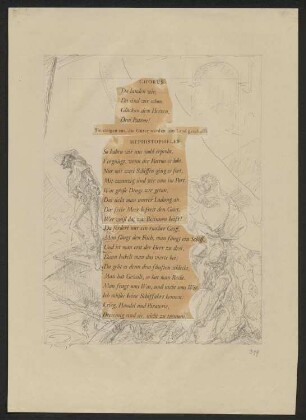 CHORUS
Da landen wir,
Da sind wir schon.
Glück an dem Herren,
Dem Patron!
Sie steigen aus, die Güter werden ans Land geschafft.
MEPHISTOPHELES
So haben wir uns wohl erprobt,
Vergnügt, wenn der Patron es lobt.
Nur mit zwei Schiffen ging es fort,
Mit zwanzig sind wir nun im Port.
Was große Dinge wir getan,
Das sieht man unsrer Ladung an.
Das freie Meer befreit den Geist,
Wer weiß da, was Besinnen heißt!
Da fördert nur ein rascher Griff,
Man fängt den Fisch, man fängt ein Schiff,
Und ist man erst der Herr zu drei,
Dann hakelt man das vierte bei;
Da geht es denn dem fünften schlecht,
Man hat Gewalt, so hat man Recht.
Man fragt ums Was, und nicht ums Wie.
Ich müßte keine Schiffahrt kennen:
Krieg, Handel und Piraterie,
Dreieinig sind sie, nicht zu trennen.